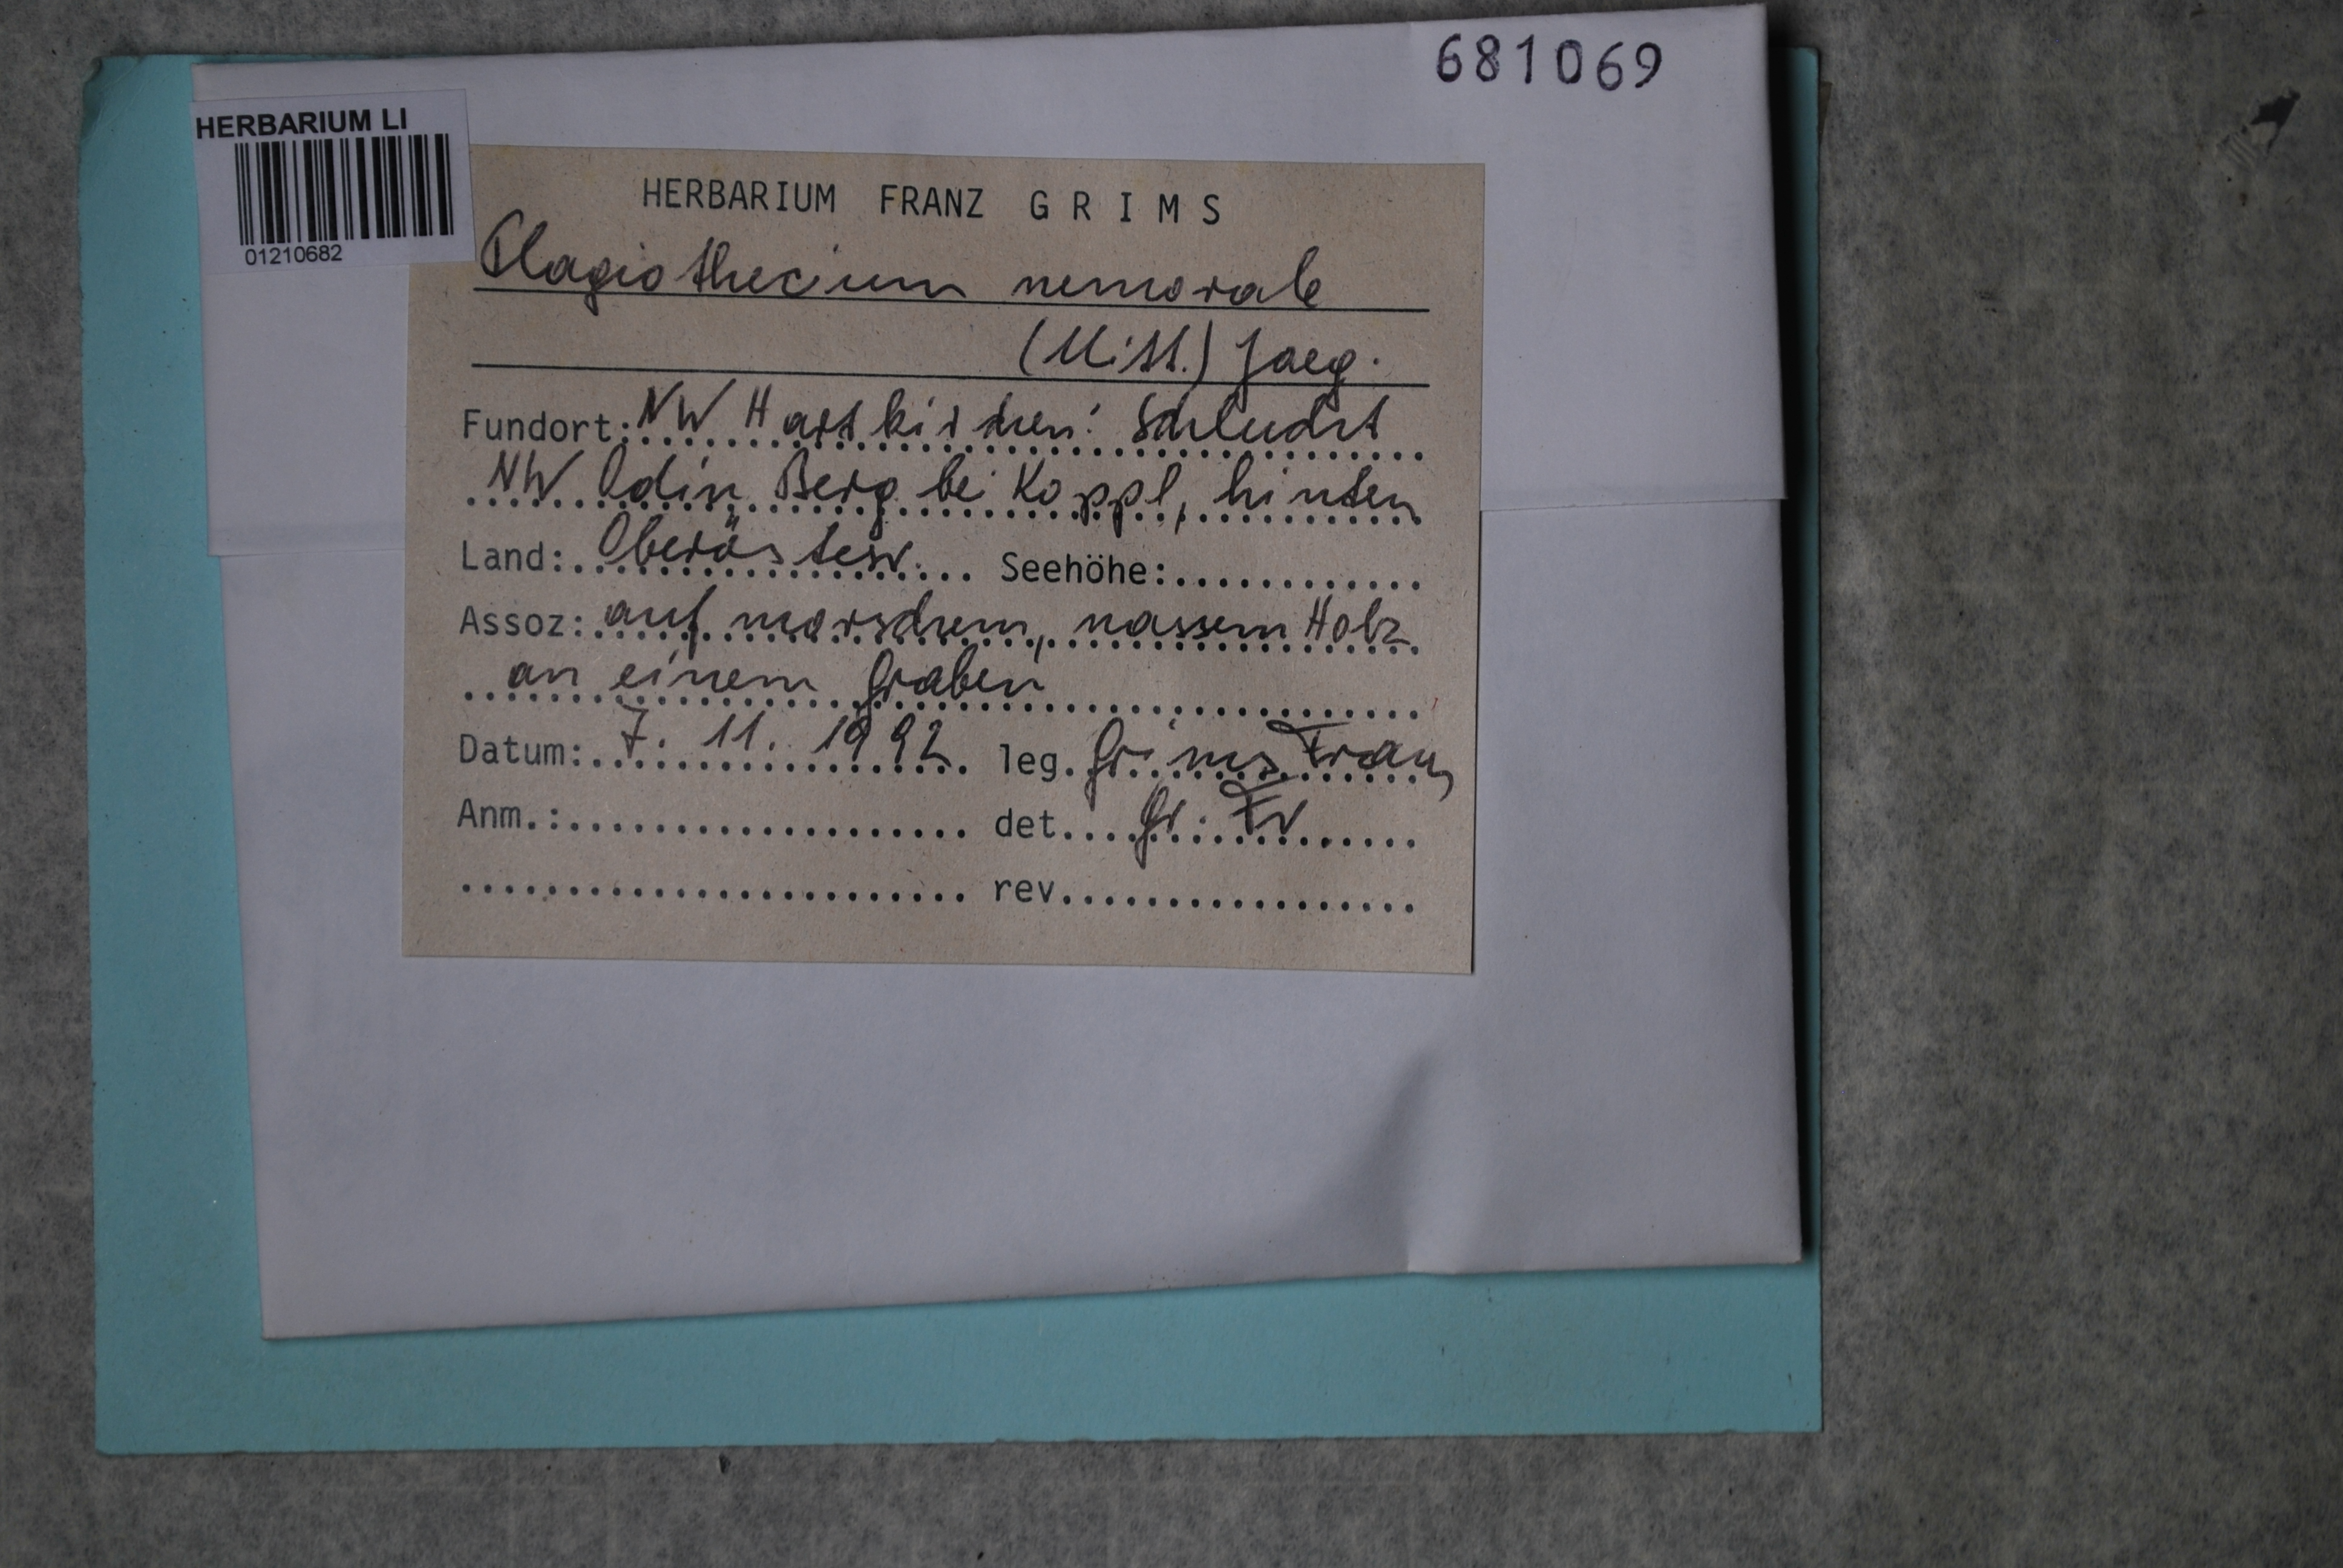 681069
HERBARIUM LI
01210682
HERBARIUM FRANZ GRIMS
Plagiothecium nemorale
(Mitt.) Jaeg.
Fundort: NW Hartkirchen: Schlucht
NW Odin Berg bei Koppl, hinten
Land: Oberösterr. Seehöhe:
Assoz: auf morschem, nassem Holz
an einem Graben
Datum: 7. 11. 1992 leg. Grims Franz
Anm.: det. Gr. Fr
rev.